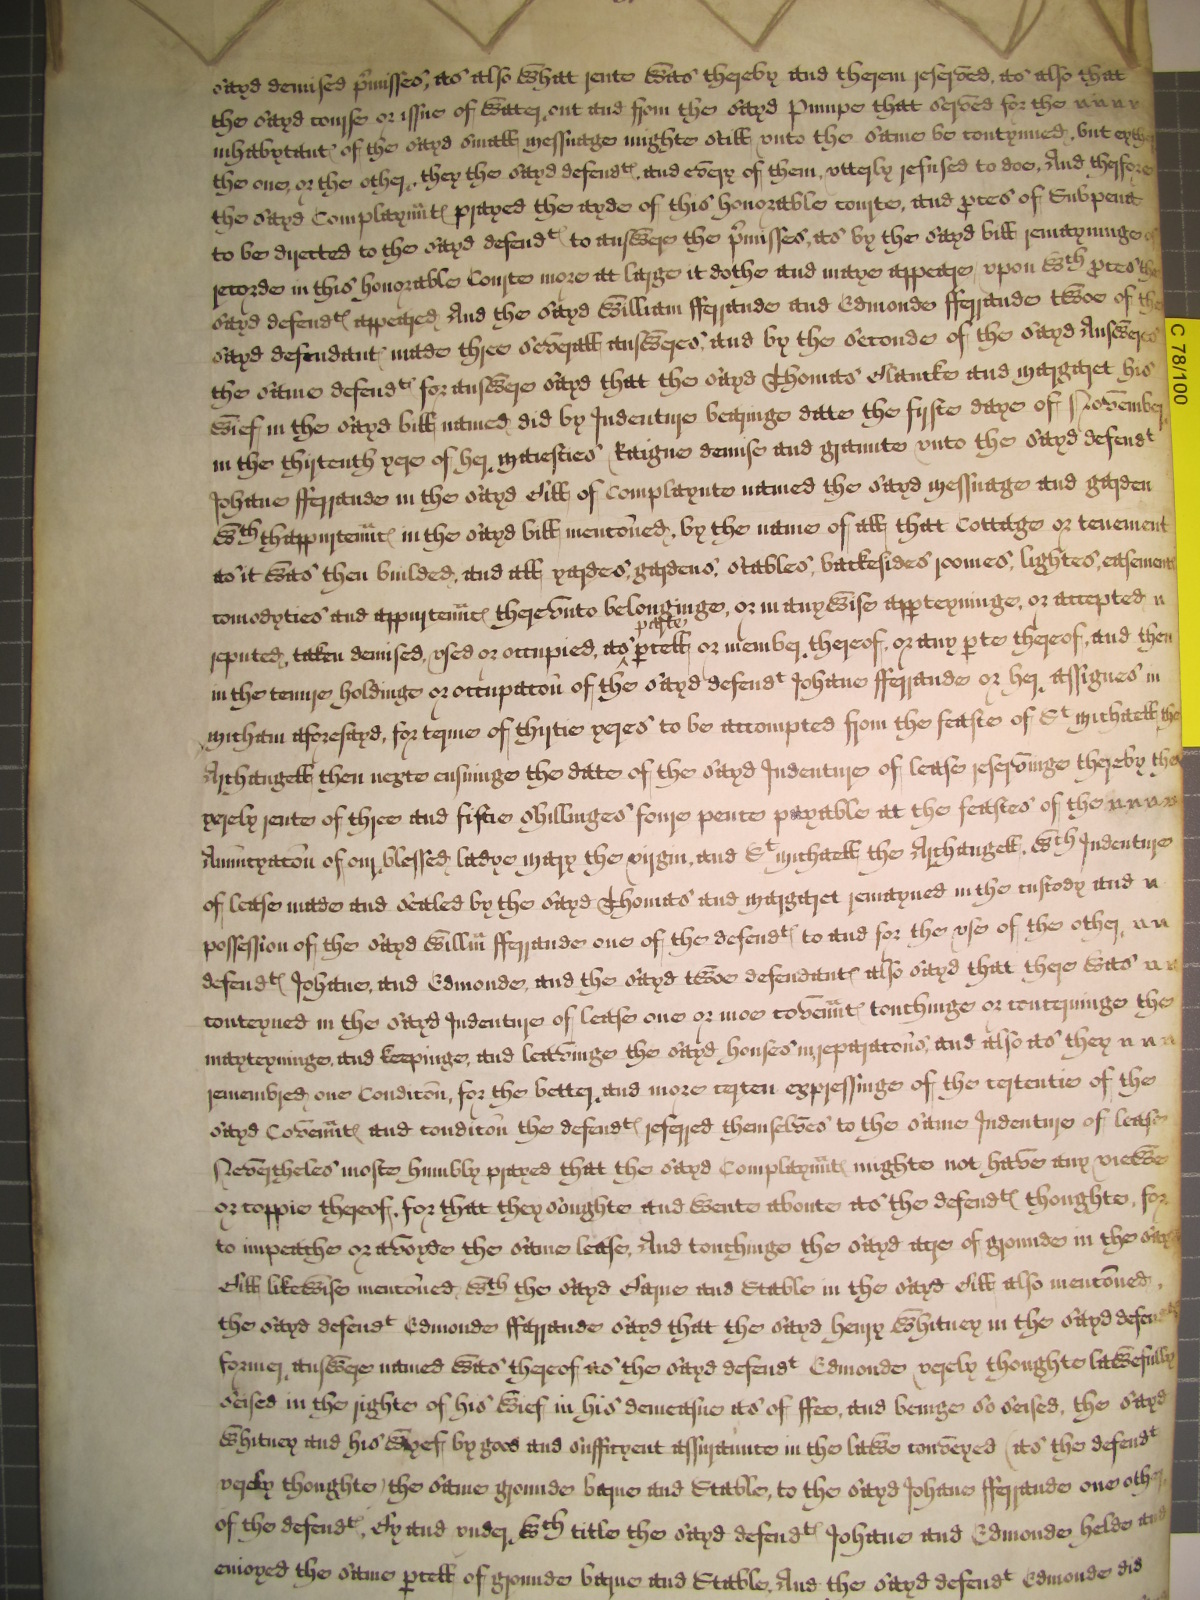 sayd demised p̃misses, as also what rente was thereby and therein reserved, as also that
the sayd course or issue of water, out and from the sayd Pumpe that served for the
inhabytantꝭ of the sayd small messuage mighte still vnto the same be contynued, but eyther
the one, or the other, they the sayd defendtꝭ, and every of them, vtterly refused to doe, And therfore
the sayd Complaynñtꝭ prayed the ayde of this honorable courte, and ꝓces of Subpena
to be directed to the sayd defendtꝭ to answere the p̃misses, as by the sayd bill remayninge of
recorde in this honorable Courte more at large it dothe and maye appeare, vpon wch ꝓces the
sayd defendtꝭ appeared, And the sayd William fferrande and Edmonde fferrande twoe of the
sayd defendantꝭ made three severall answeres, and by the seconde of the sayd Answeres
the same defendtꝭ for answere sayd that the sayd Thomas Clarcke and Margaret his
wief in the sayd bill named, did by Indenture bearinge date the fyrste daye of November
in the thirtenth yere of her Maiesties Raigne demise and graunte vnto the sayd defendt
Johane fferrande in the sayd Bill of Complaynte named the sayd messuage and garden
wth thappurtennꝭ in the sayd bill mencõned, by the name of all that Cottage or tenement
as it was then builded, and all yardes, gardens, stables, backesides roomes, lightes, easementꝭ
comodyties and appurtennꝭ therevnto belonginge, or in anywise apperteyninge, or accepted
parte
reputed, taken demised, vsed or occupied, as ꝑcell or member thereof, or any ꝑte thereof, and then
in the tenure holdinge or occupacõn of the sayd defendt Johane fferrande or her assignes in
Micham aforesayd, for terme of thirtie yeres to be accompted from the feaste of St Michaell the
Archangell then nexte ensuinge the date of the sayd Indenture of lease reservinge thereby the
yerely rente of three and fiftie shillinges foure pence payable at the feastes of the
Annũcyacõn of our blessed ladye Mary the virgin, and St Michaell the Archangell, wch Indenture
of lease made and sealed by the sayd Thomas and Margaret remayned in the custody and
possession of the sayd Willm̃ fferrande one of the defendtꝭ to and for the vse of the other
defendtꝭ Johane, and Edmonde, and the sayd twoe defendantꝭ also sayd that there was
conteyned in the sayd Indenture of lease one or moe covenñtꝭ touchinge or concerninge the
maynteyninge, and keepinge, and leavinge the sayd houses in reparacõns, and also as they
remembred, one Condicõn, for the better, and more certen expressinge of the certentie of the
sayd Covenñtꝭ and condicõn the defendtꝭ referred themselves to the same Indenture of lease
Nevertheles moste humbly prayed that the sayd Complaynñtꝭ mighte not have any viewe
or coppie thereof, for that they soughte and wente aboute as the defendtꝭ thoughte, for
to impeache or avoyde the same lease, And touchinge the sayd acre of grounde in the sayd
Bill likewise mencõned, wth the sayd Barne and Stable in the sayd Bill also mencõned,
the sayd defendt Edmonde ffarrande sayd that the sayd henry Whitney in the sayd defendtꝭ
former answere named was thereof as the sayd defendt Edmonde verely thoughte lawefully
seised in the righte of his wief in his demeasne as of ffee, and beinge so seised, the sayd
Whitney and his wyef by good and suffycyent assuraunce in the lawe conveyed (as the defendt
verely thoughte) the same grounde barne and Stable, to the sayd Johane fferrande one other
of the defendtꝭ, By and vnder wch title the sayd defendtꝭ Johane and Edmonde helde and
enioyed the same ꝑcell of grounde barne and Stable, And the sayd defendt Edmonde did
C 78/100